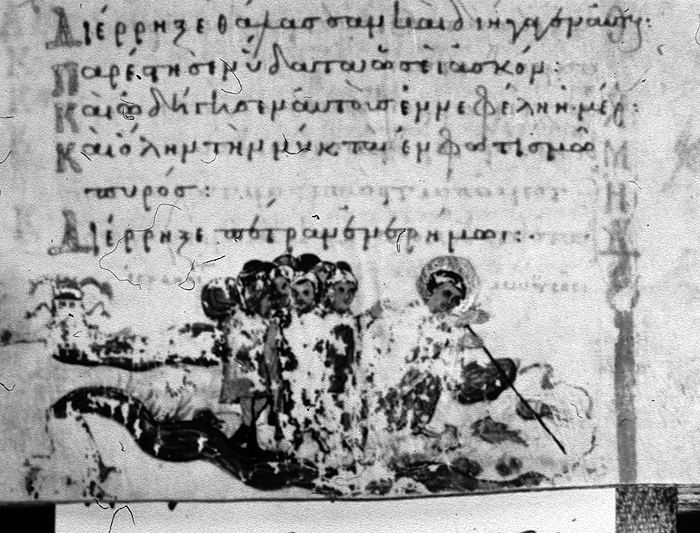 Διέρρηξε θάλασσαν καὶ διήγαγεν αὐτούς:
Παρέστησεν ὕδατα ὡσεὶ ἀσκόν:
Καὶ ὡδήγησεν αὐτοὺς ἐν νεφέλῃ ἡμέρ:
Καὶ ὅλην τὴν νύκτα ἐν φωτισμῷ
πυρός:
Διέρρηξε πέτραν ἐν ἐρήμῳ: